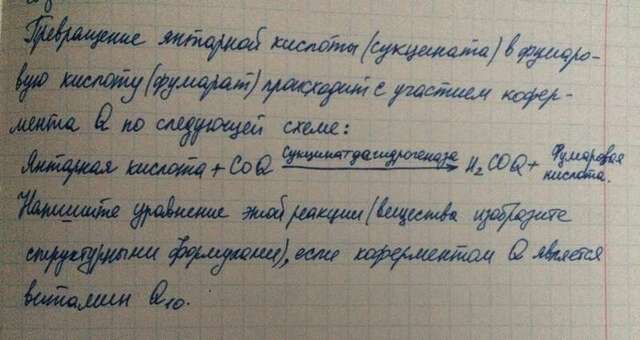 Превращение янтарной кислоты (сукцината) в фумаро-
вую кислоту (фумарат) происходит с участием кофер-
мента Q по следующей схеме:
Янтарная кислота + CoQ Сукцинатдегидрогеназа H₂COQ + Фумаровая кислота.
Напишите уравнение этой реакции (вещества изобразите
структурными формулами), если коферментом Q является
витамин Q₁₀.